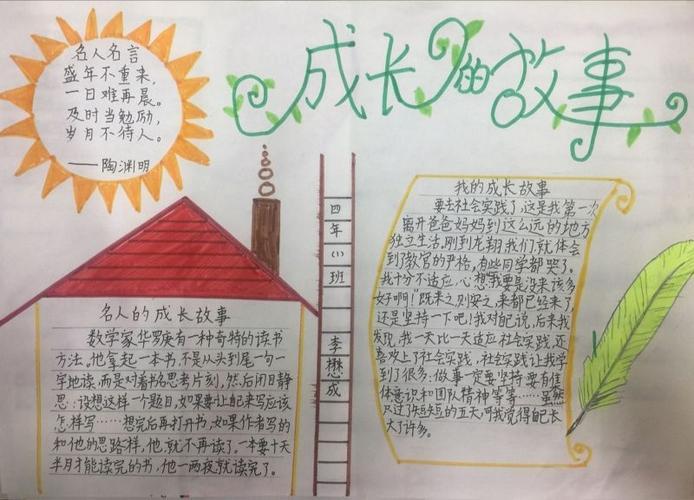 成长的故事
名人名言
盛年不重来，
一日难再晨。
及时当勉励，
岁月不待人。
——陶渊明
名人的成长故事
数学家华罗庚有一种奇特的读书
方法。他拿起一本书，不是从头到尾一句一
字地读，而是对着书名思考片刻，然后闭目静
思：设想这样一个题目，如果要让自己来写应该
怎样写……想完后再打开书，如果作者写的
和他的思路一样，他就不再读了。一本要十天
半月才能读完的书，他一两夜就读完了。
四年(1)班
李懋成
我的成长故事
要去社会实践了，这是我第一次
离开爸爸妈妈到这么远的地方
独立生活。刚到龙翔我们就体会
到了教官的严格，有些同学都哭了。
我十分不适应，心想：我要是没来该多
好啊！"既来之，则安之，来都已经来了，
还是坚持一下吧！我对自己说，后来我
发现，我一天比一天适应社会实践，还
喜欢上了社会实践，社会实践让我学
到了很多：做事一定要坚持，要有集
体意识和团队精神等等……虽然
只过了短短的五天，可我觉得自己长
大了许多。